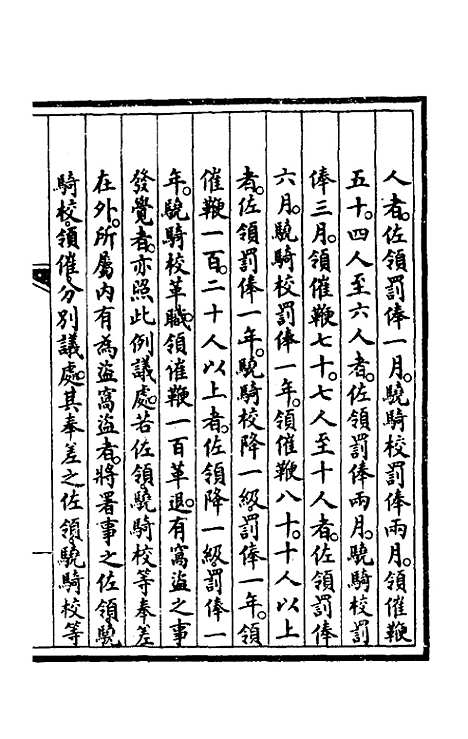 人者。佐領罰俸一月。驍騎校罰俸兩月。領催鞭
五十。四人至六人者。佐領罰俸兩月。驍騎校罰
俸三月。領催鞭七十。七人至十人者。佐領罰俸
六月。驍騎校罰俸一年。領催鞭八十。十人以上
者。佐領罰俸一年。驍騎校降一級。罰俸一年。領
催鞭一百。二十人以上者。佐領降一級罰俸一
年。驍騎校革職。領催鞭一百革退。有窩盜之事
發覺者。亦照此例議處。若佐領驍騎校等奉差
在外。所屬內有為盜窩盜者。將署事之佐領驍
騎校。領催分別議處。其奉差之佐領驍騎校等